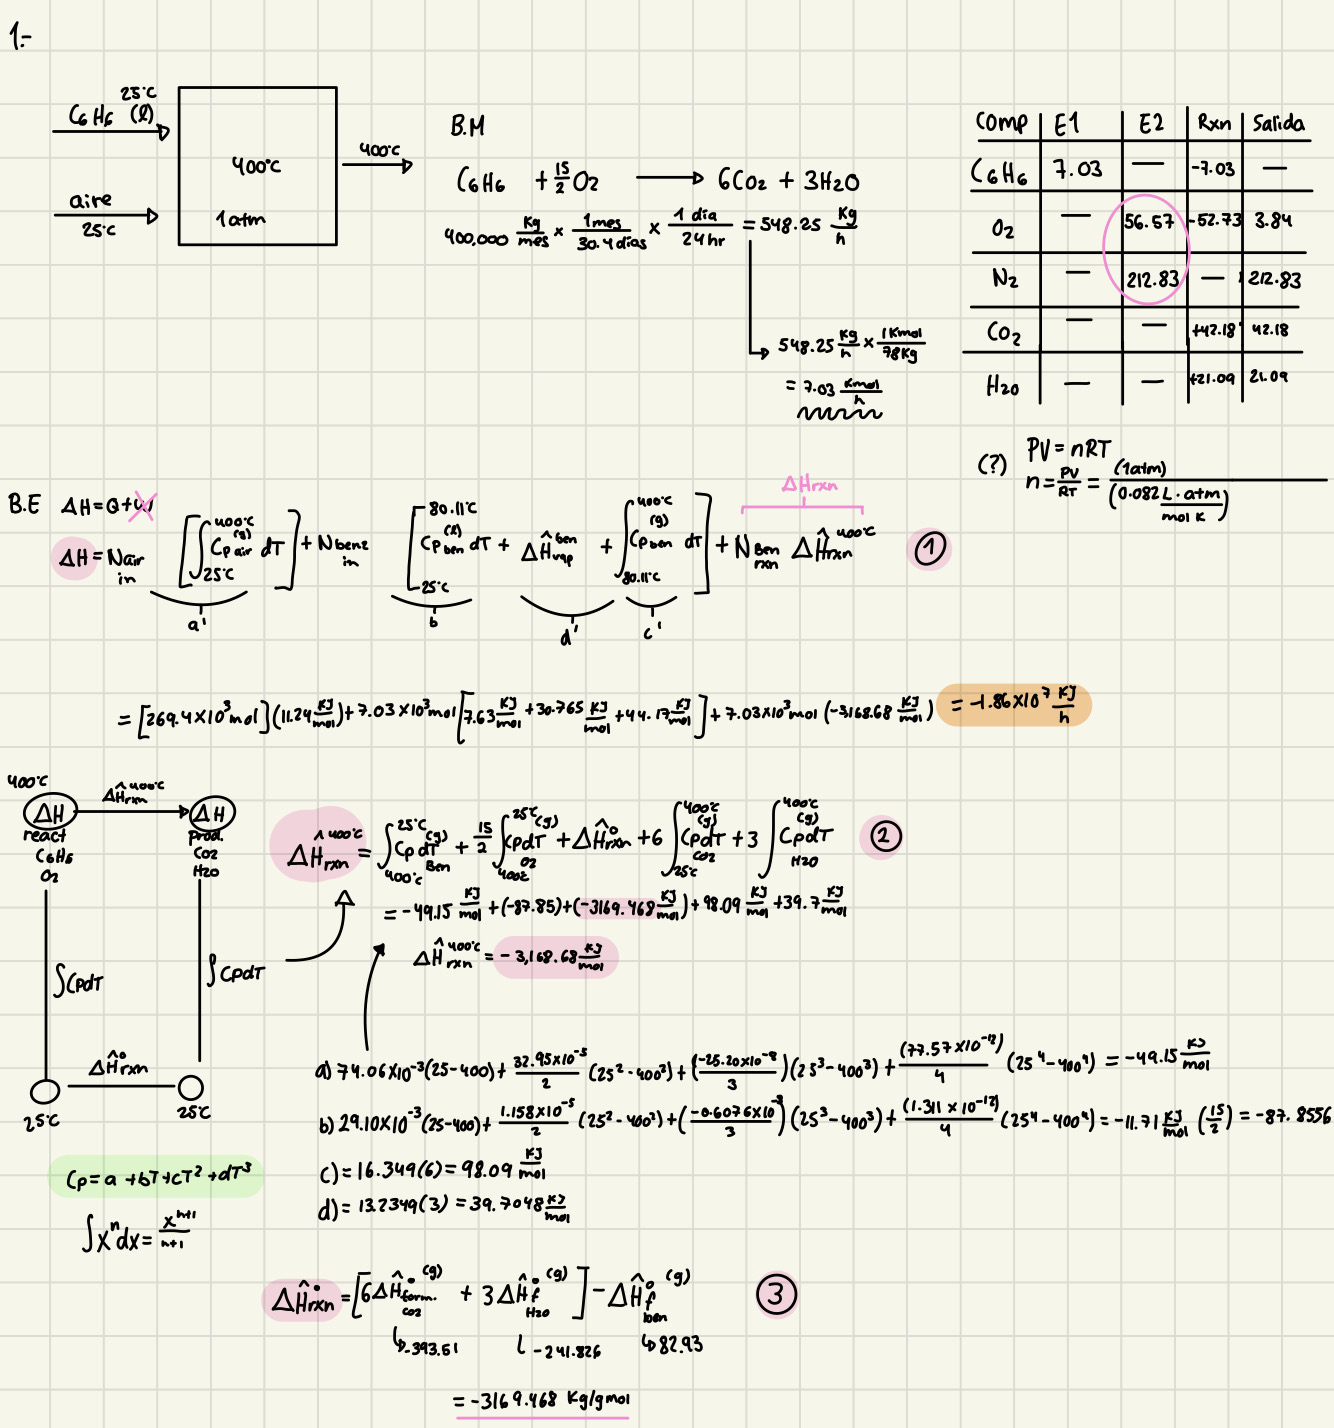 1.-
25°C
C6H6 (l)
400°C
aire
25°C
400°C
1atm
B.M
C6H6 + 15/2 O2 → 6CO2 + 3H2O
400,000 Kg/mes × 1mes/30.4 dias × 1 dia/24hr = 548.25 Kg/h
548.25 Kg/h × 1Kmol/78Kg
= 7.03 Kmol/h
Comp E1 E2 Rxn Salida
C6H6 7.03 — -7.03 —
O2 — 56.57 -52.73 3.84
N2 — 212.83 — 212.83
CO2 — — +42.18 42.18
H2O — — +21.09 21.09
(?) PV = nRT
n = PV/RT = (1atm)/(0.082 L·atm/mol K)
B.E ΔH = Q + W
ΔHrxn
ΔH = Nair in [∫25°C^400°C Cp air (g) dT] + Nbenz in [∫25°C^80.11°C Cp ben (l) dT + ΔĤvap ben + ∫80.11°C^400°C Cp ben (g) dT] + N Ben rxn ΔĤrxn 400°C ①
a' b d' c'
= [269.4×10³mol](11.24 KJ/mol) + 7.03×10³mol [7.63 KJ/mol + 30.765 KJ/mol + 44.17 KJ/mol] + 7.03×10³mol (-3168.68 KJ/mol) = -1.86×10⁷ KJ/h
400°C
ΔH ΔĤrxn 400°C ΔH
react prod.
C6H6 CO2
O2 H2O
∫CpdT ∫CpdT
ΔĤ°rxn
25°C 25°C
ΔĤrxn 400°C = ∫400°C^25°C Cp dT (g) Ben + 15/2 ∫400°C^25°C Cp dT (g) O2 + ΔĤ°rxn + 6 ∫25°C^400°C Cp dT (g) CO2 + 3 ∫^400°C Cp dT (g) H2O ②
= -49.15 KJ/mol + (-87.85) + (-3169.468 KJ/mol) + 98.09 KJ/mol + 39.7 KJ/mol
ΔĤrxn 400°C = -3,168.68 KJ/mol
a) 74.06×10⁻³(25-400) + 32.95×10⁻⁵/2 (25²-400²) + (-25.20×10⁻⁸/3)(25³-400³) + (77.57×10⁻¹²)/4 (25⁴-400⁴) = -49.15 KJ/mol
b) 29.10×10⁻³(25-400) + 1.158×10⁻⁵/2 (25²-400²) + (-0.6076×10⁻⁸/3)(25³-400³) + (1.311×10⁻¹²)/4 (25⁴-400⁴) = -11.71 KJ/mol (15/2) = -87.8556
c) = 16.349(6) = 98.09 KJ/mol
d) = 13.2349(3) = 39.7048 KJ/mol
Cp = a + bT + cT² + dT³
∫xⁿdx = xⁿ⁺¹/n+1
ΔĤ°rxn = [6ΔĤ°form. (g) CO2 + 3ΔĤ°f (g) H2O] - ΔĤ°f (g) ben ③
-393.51 -241.826 82.93
= -3169.468 Kg/gmol